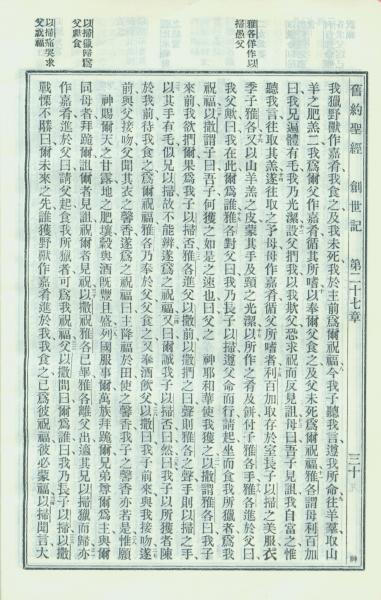 舊約聖經 創世記 第二十七章 三十
雅各佯作以
掃愚父
以掃獵歸為
父具食
以掃痛哭求
父祝福
我獵野獸作嘉肴我食之及我未死我於主前為爾祝福今我子聽我言遵我所命往羊羣取山
羊之肥羔二我為爾父作嘉肴循其所嗜以奉爾父食之及父未死為爾祝福雅各謂母利百加
曰我兄遍體有毛我乃光潔設父捫我以我欺父恐求祝而反見詛母曰吾子見詛我自當之惟
聽我言往取其羔遂往取之予母母作嘉肴循父所嗜者利百加取存於室長子以掃之美服衣
季子雅各又以山羊羔之皮蒙其手及頸之光潔以所作之肴及餅付子雅各手雅各進於父曰
父歟曰我在此爾為誰雅各對父曰我乃長子以掃遵父命而行請起坐而食我所獵者為我
祝福以撒謂子曰吾子何獲之如是之速也曰父之 神耶和華使我獲之以撒謂雅各曰我子
來前我欲捫爾果為我子以掃否雅各進父以撒前以撒捫之曰聲則雅各之聲手則以掃之手
以其手有毛似兄以掃故不能辨遂為之祝福又曰爾誠我子以掃否曰然曰我子以所獲者陳
於我前待我食之為爾祝福雅各乃奉於父父食之又奉酒飲父以撒曰我子前來與我接吻遂
前與父接吻父聞其衣之馨香遂為之祝福曰主降福於田使之馨香我子之馨香亦若是惟願
神賜爾天之甘露地之肥壤穀與酒既豐且盛列國服事爾萬族拜跪爾兄弟尊爾為主與爾
同母者拜跪爾詛爾者見詛祝爾者見祝以撒祝雅各已畢雅各離父出適其兄以掃獵而歸亦
作嘉肴進於父曰請父起食我所獵者可為我祝福父以撒問曰爾為誰曰我乃長子以掃以撒
戰慄不勝曰爾未來之先誰獲野獸作嘉肴進於我我食之已為彼祝福彼必蒙福以掃聞言大